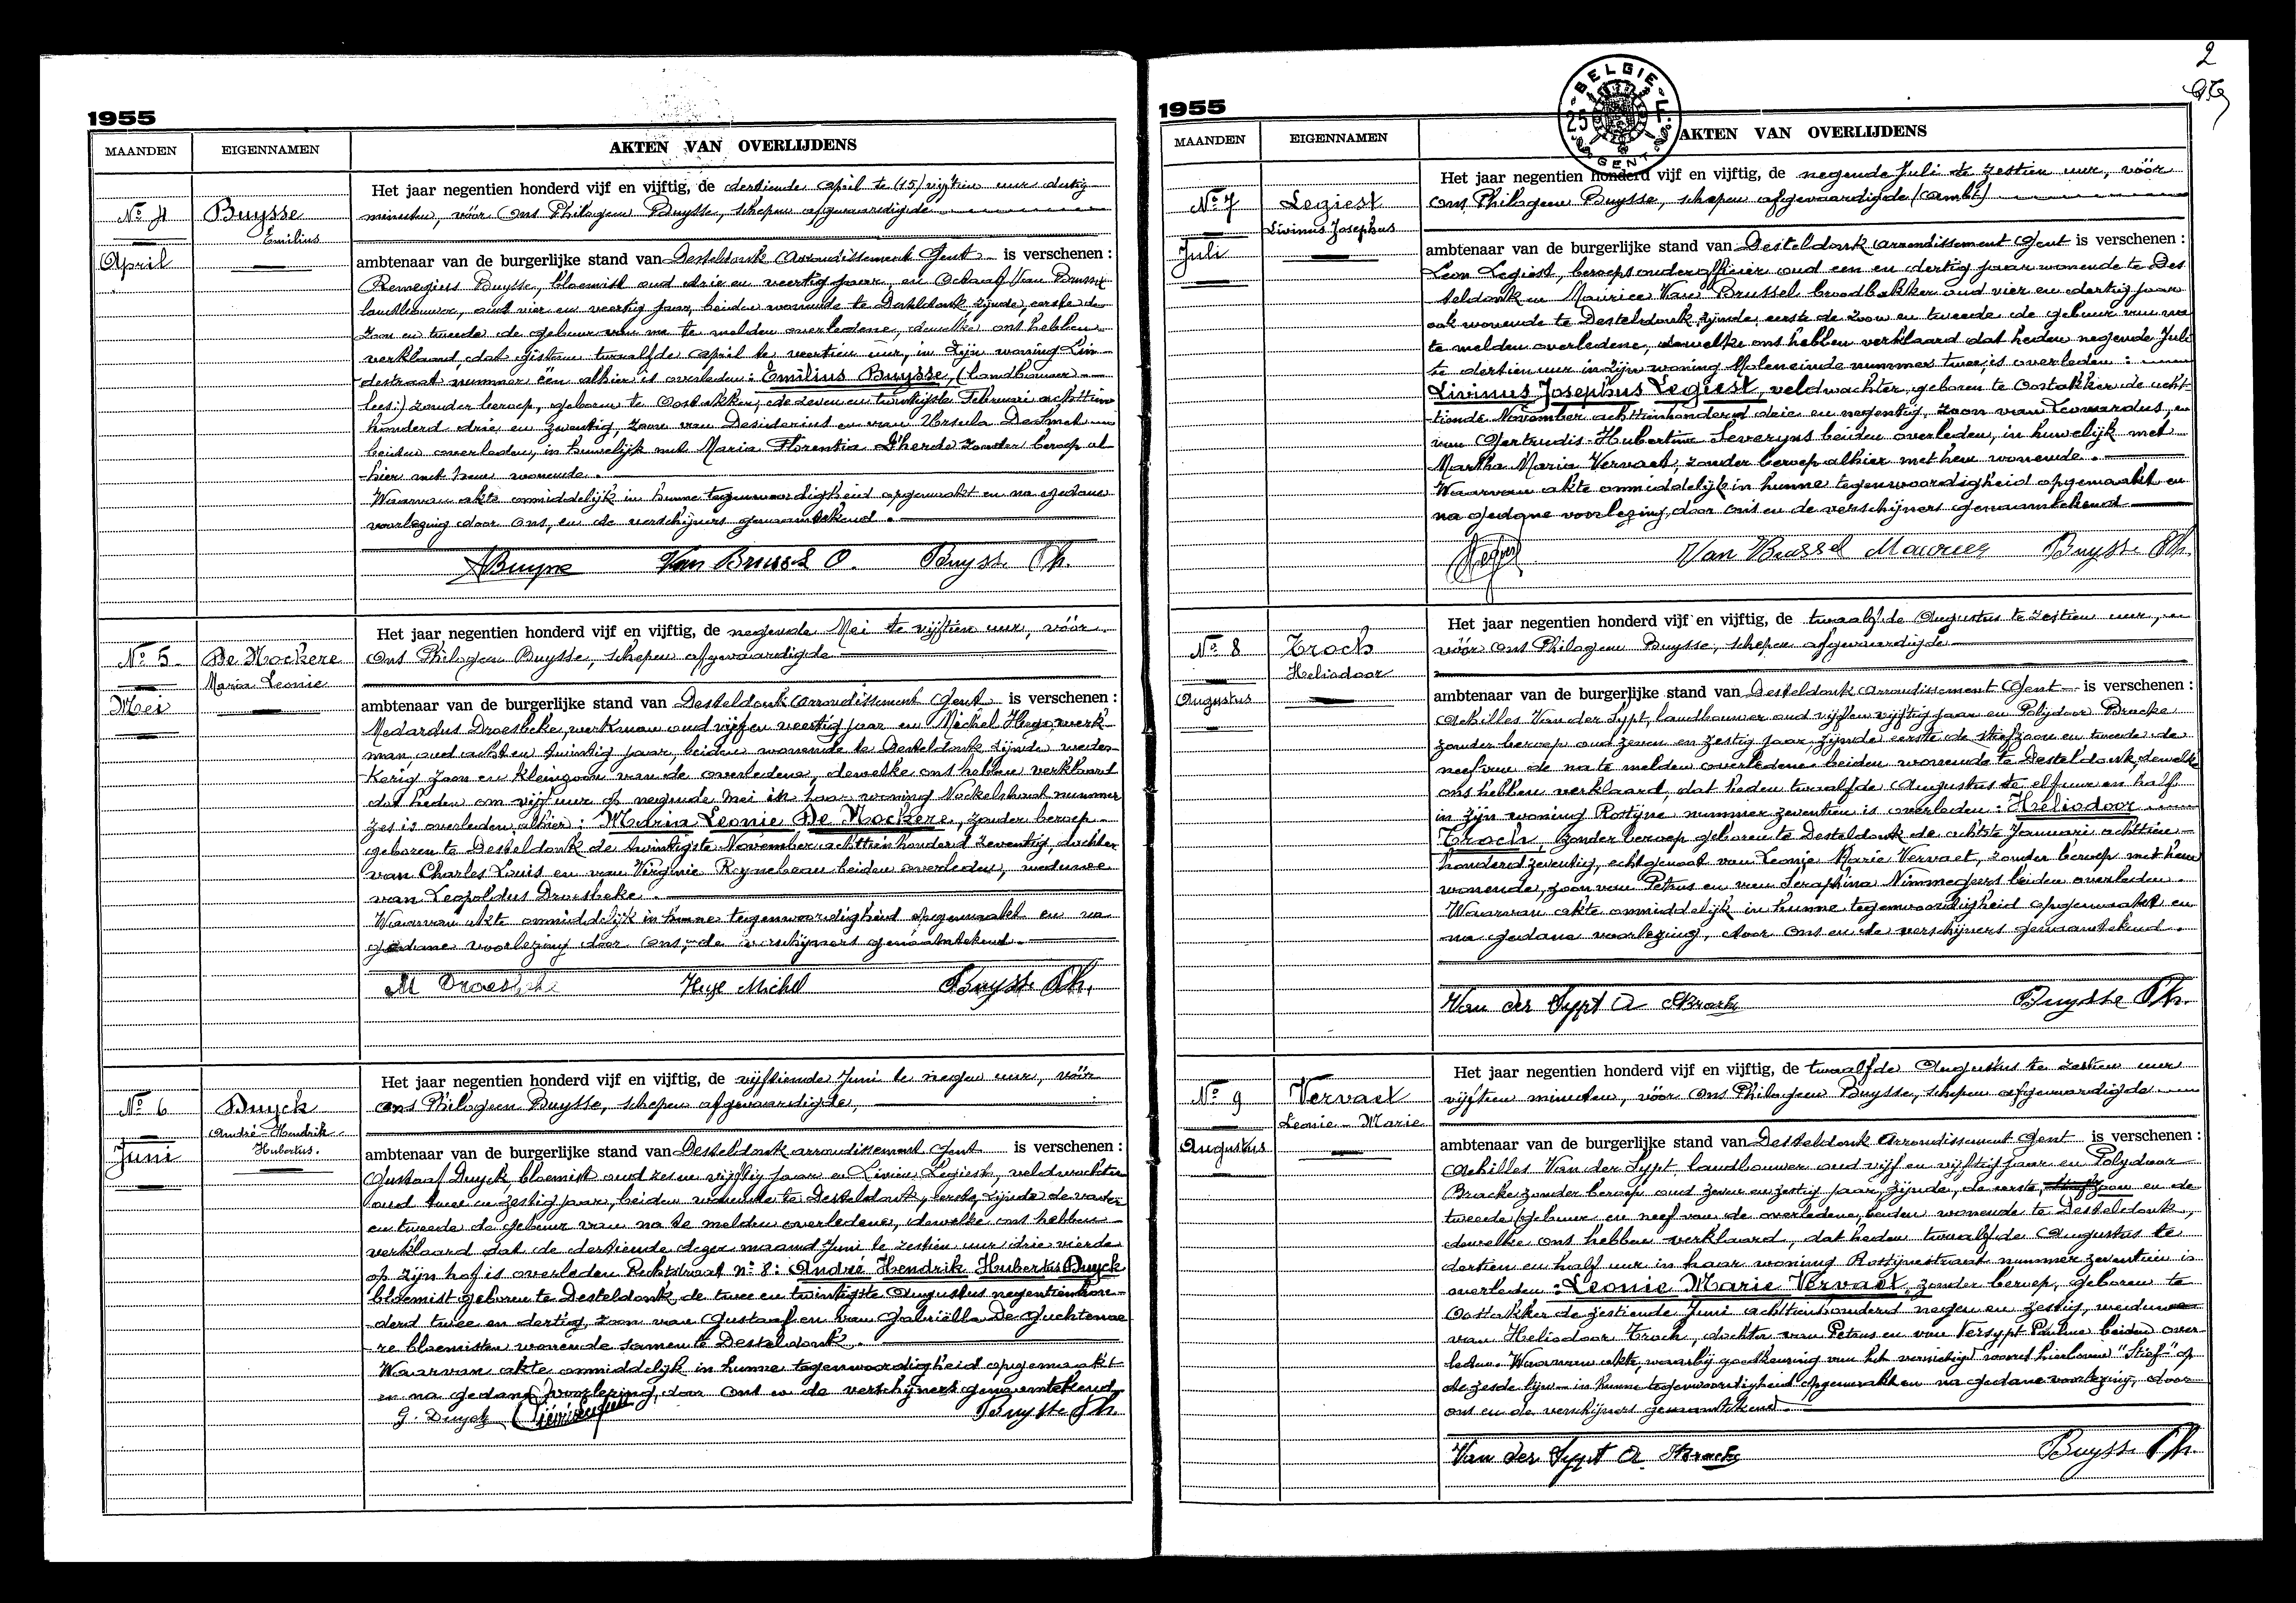 1955
MAANDEN
EIGENNAMEN
AKTEN VAN OVERLIJDENS
Nº 4
April
Buysse
Emilius
Het jaar negentien honderd vijf en vijftig, de dertiende april te (15) vijftien uur dertig
minuten, vóór Ons Philogeen Buysse, schepen afgevaardigde
ambtenaar van de burgerlijke stand van Desteldonk Arrondissement Gent is verschenen :
Remegius Buysse, bloemist oud drie en veertig jaar, en Octaaf Van Brussel
landbouwer, oud vier en veertig jaar, beiden wonende te Desteldonk, zijnde, eerste de
zoon en tweede de gebuur van na te melden overledene, dewelke ons hebben
verklaard, dat gisteren twaalfde april te veertien uur, in zijn woning Lin-
destraat nummer één alhier is overleden : Emilius Buysse, (landbouwer
lees:) zonder beroep, geboren te Oostakker, de zeven en twintigste Februari achttien
honderd drie en zeventig, zoon van Desiderius en van Ursula Desmet
beiden overleden, in huwelijk met Maria Florentia D'herde zonder beroep al-
hier met hem wonende.
Waarvan akte onmiddelijk in hunne tegenwoordigheid opgemaakt en na gedane
voorlezing door Ons, en de verschijners genaamtekend.
Buysse Van Brussel O. Buysse Ph.
Nº 5
Mei
De Mockere
Maria Leonie
Het jaar negentien honderd vijf en vijftig, de negende Mei te vijftien uur, vóór
Ons Philogeen Buysse, schepen afgevaardigde
ambtenaar van de burgerlijke stand van Desteldonk Arrondissement Gent is verschenen :
Medardus Droesbeke, werkman oud vijf en veertig jaar en Michel Heye, werk-
man oud acht en twintig jaar, beiden wonende te Desteldonk zijnde weder-
kerig zoon en kleinzoon van de overledene, dewelke ons hebben verklaard
dat heden om vijf uur op negende Mei in haar woning nummer
zes is overleden alhier : Maria Leonie De Mockere, zonder beroep
geboren te Desteldonk de twintigste November achttienhonderd zeventig, dochter
van Charles Louis en van Virginie Rynebeau beiden overleden, weduwe
van Leopoldus Droesbeke.
Waarvan akte onmiddelijk in hunne tegenwoordigheid opgemaakt en na
gedane voorlezing door Ons, de verschijners genaamtekend.
M Droesbeke Heye Michel Buysse Ph.
Nº 6
Juni
Duyck
André-Hendrik-
Hubertus.
Het jaar negentien honderd vijf en vijftig, de vijftiende Juni te negen uur, vóór
Ons Philogeen Buysse, schepen afgevaardigde,
ambtenaar van de burgerlijke stand van Desteldonk arrondissement Gent is verschenen :
Gustaaf Duyck, bloemist oud zes en vijftig jaar en Livien Legiest, veldwachter
oud twee en zestig jaar, beiden wonende te Desteldonk, eerste zijnde de vader
en tweede de gebuur van na te melden overledene, dewelke ons hebben
verklaard dat de dertiende dezer maand Juni te zestien uur drie vierde
op zijn hof is overleden Rechtstraat nº 8 : André Hendrik Hubertus Duyck
bloemist geboren te Desteldonk de twee en twintigste Augustus negentienhon-
derd twee en dertig, zoon van Gustaaf en van Gabriëlla De Guchtenae-
re bloemisten wonende samen te Desteldonk.
Waarvan akte onmiddelijk in hunne tegenwoordigheid opgemaakt
en na gedane voorlezing, door Ons en de verschijners genaamtekend.
G. Duyck Buysse Ph.
2
1955
BELGIE
25
GENT
MAANDEN
EIGENNAMEN
AKTEN VAN OVERLIJDENS
Nº 7
Juli
Legiest
Livinus Josephus
Het jaar negentien honderd vijf en vijftig, de negende Juli te zestien uur, vóór
Ons Philogeen Buysse, schepen afgevaardigde (ambt)
ambtenaar van de burgerlijke stand van Desteldonk Arrondissement Gent is verschenen :
Leon Legiest, beroepsonderofficier oud een en dertig jaar wonende te Des-
teldonk en Maurice Van Brussel broodbakker oud vier en dertig jaar
ook wonende te Desteldonk, zijnde eerste de zoon en tweede de gebuur van na
te melden overledene, dewelke ons hebben verklaard dat heden negende Juli
te dertien uur in zijn woning Moleneinde nummer twee is overleden :
Livinus Josephus Legiest, veldwachter, geboren te Oostakker de acht-
tiende November achttienhonderd drie en negentig, zoon van Leonardus, en
van Gertrudis-Hubertine Severyns beiden overleden, in huwelijk met
Martha Maria Vervaet, zonder beroep alhier met hem wonende.
Waarvan akte onmiddelijk in hunne tegenwoordigheid opgemaakt en
na gedane voorlezing, door Ons en de verschijners genaamtekend
Van Brussel Maurice Buysse Ph.
Nº 8
Augustus
Troch
Heliodoor
Het jaar negentien honderd vijf en vijftig, de twaalfde Augustus te zestien uur,
vóór Ons Philogeen Buysse, schepen afgevaardigde
ambtenaar van de burgerlijke stand van Desteldonk Arrondissement Gent is verschenen :
Achilles Van der Sypt, landbouwer oud vijf en vijftig jaar en Polydoor Bracke
zonder beroep oud zeven en zestig jaar, zijnde eerste de stiefzoon en tweede de
neef van de na te melden overledene beiden wonende te Desteldonk, dewelke
ons hebben verklaard, dat heden twaalfde Augustus te elf uur en half
in zijn woning Rostijne nummer zeventien is overleden : Heliodoor
Troch, zonder beroep geboren te Desteldonk de achtste Januari achttien-
honderd zeventig, echtgenoot van Leonie Marie Vervaet, zonder beroep met hem
wonende, zoon van Petrus en van Seraphina Nimmegeers beiden overleden.
Waarvan akte onmiddelijk in hunne tegenwoordigheid opgemaakt en
na gedane voorlezing, door Ons en de verschijners genaamtekend.
Van der Sypt A Bracke Buysse Ph.
Nº 9
Augustus
Vervaet
Leonie-Marie
Het jaar negentien honderd vijf en vijftig, de twaalfde Augustus te zestien uur
vijftien minuten, vóór Ons Philogeen Buysse, schepen afgevaardigde
ambtenaar van de burgerlijke stand van Desteldonk Arrondissement Gent is verschenen :
Achilles Van der Sypt landbouwer oud vijf en vijftig jaar en Polydoor
Bracke zonder beroep oud zeven en zestig jaar, zijnde, de eerste, stiefzoon en de
tweede gebuur en neef van de overledene, beiden wonende te Desteldonk,
dewelke ons hebben verklaard, dat heden twaalfde Augustus te
dertien en half uur in haar woning Rostijnestraat nummer zeventien is
overleden : Leonie Marie Vervaet, zonder beroep, geboren te
Oostakker de zestiende Juni achttienhonderd negen en zestig, weduwe
van Heliodoor Troch, dochter van Petrus en van Versypt Pauline beiden over-
leden. Waarvan akte, waarbij goedkeuring van het vernietigd woord hierboven "Stief" op
de zesde lijn in hunne tegenwoordigheid opgemaakt en na gedane voorlezing, door
ons en de verschijners genaamtekend.
Van der Sypt A. Bracke Buysse Ph.